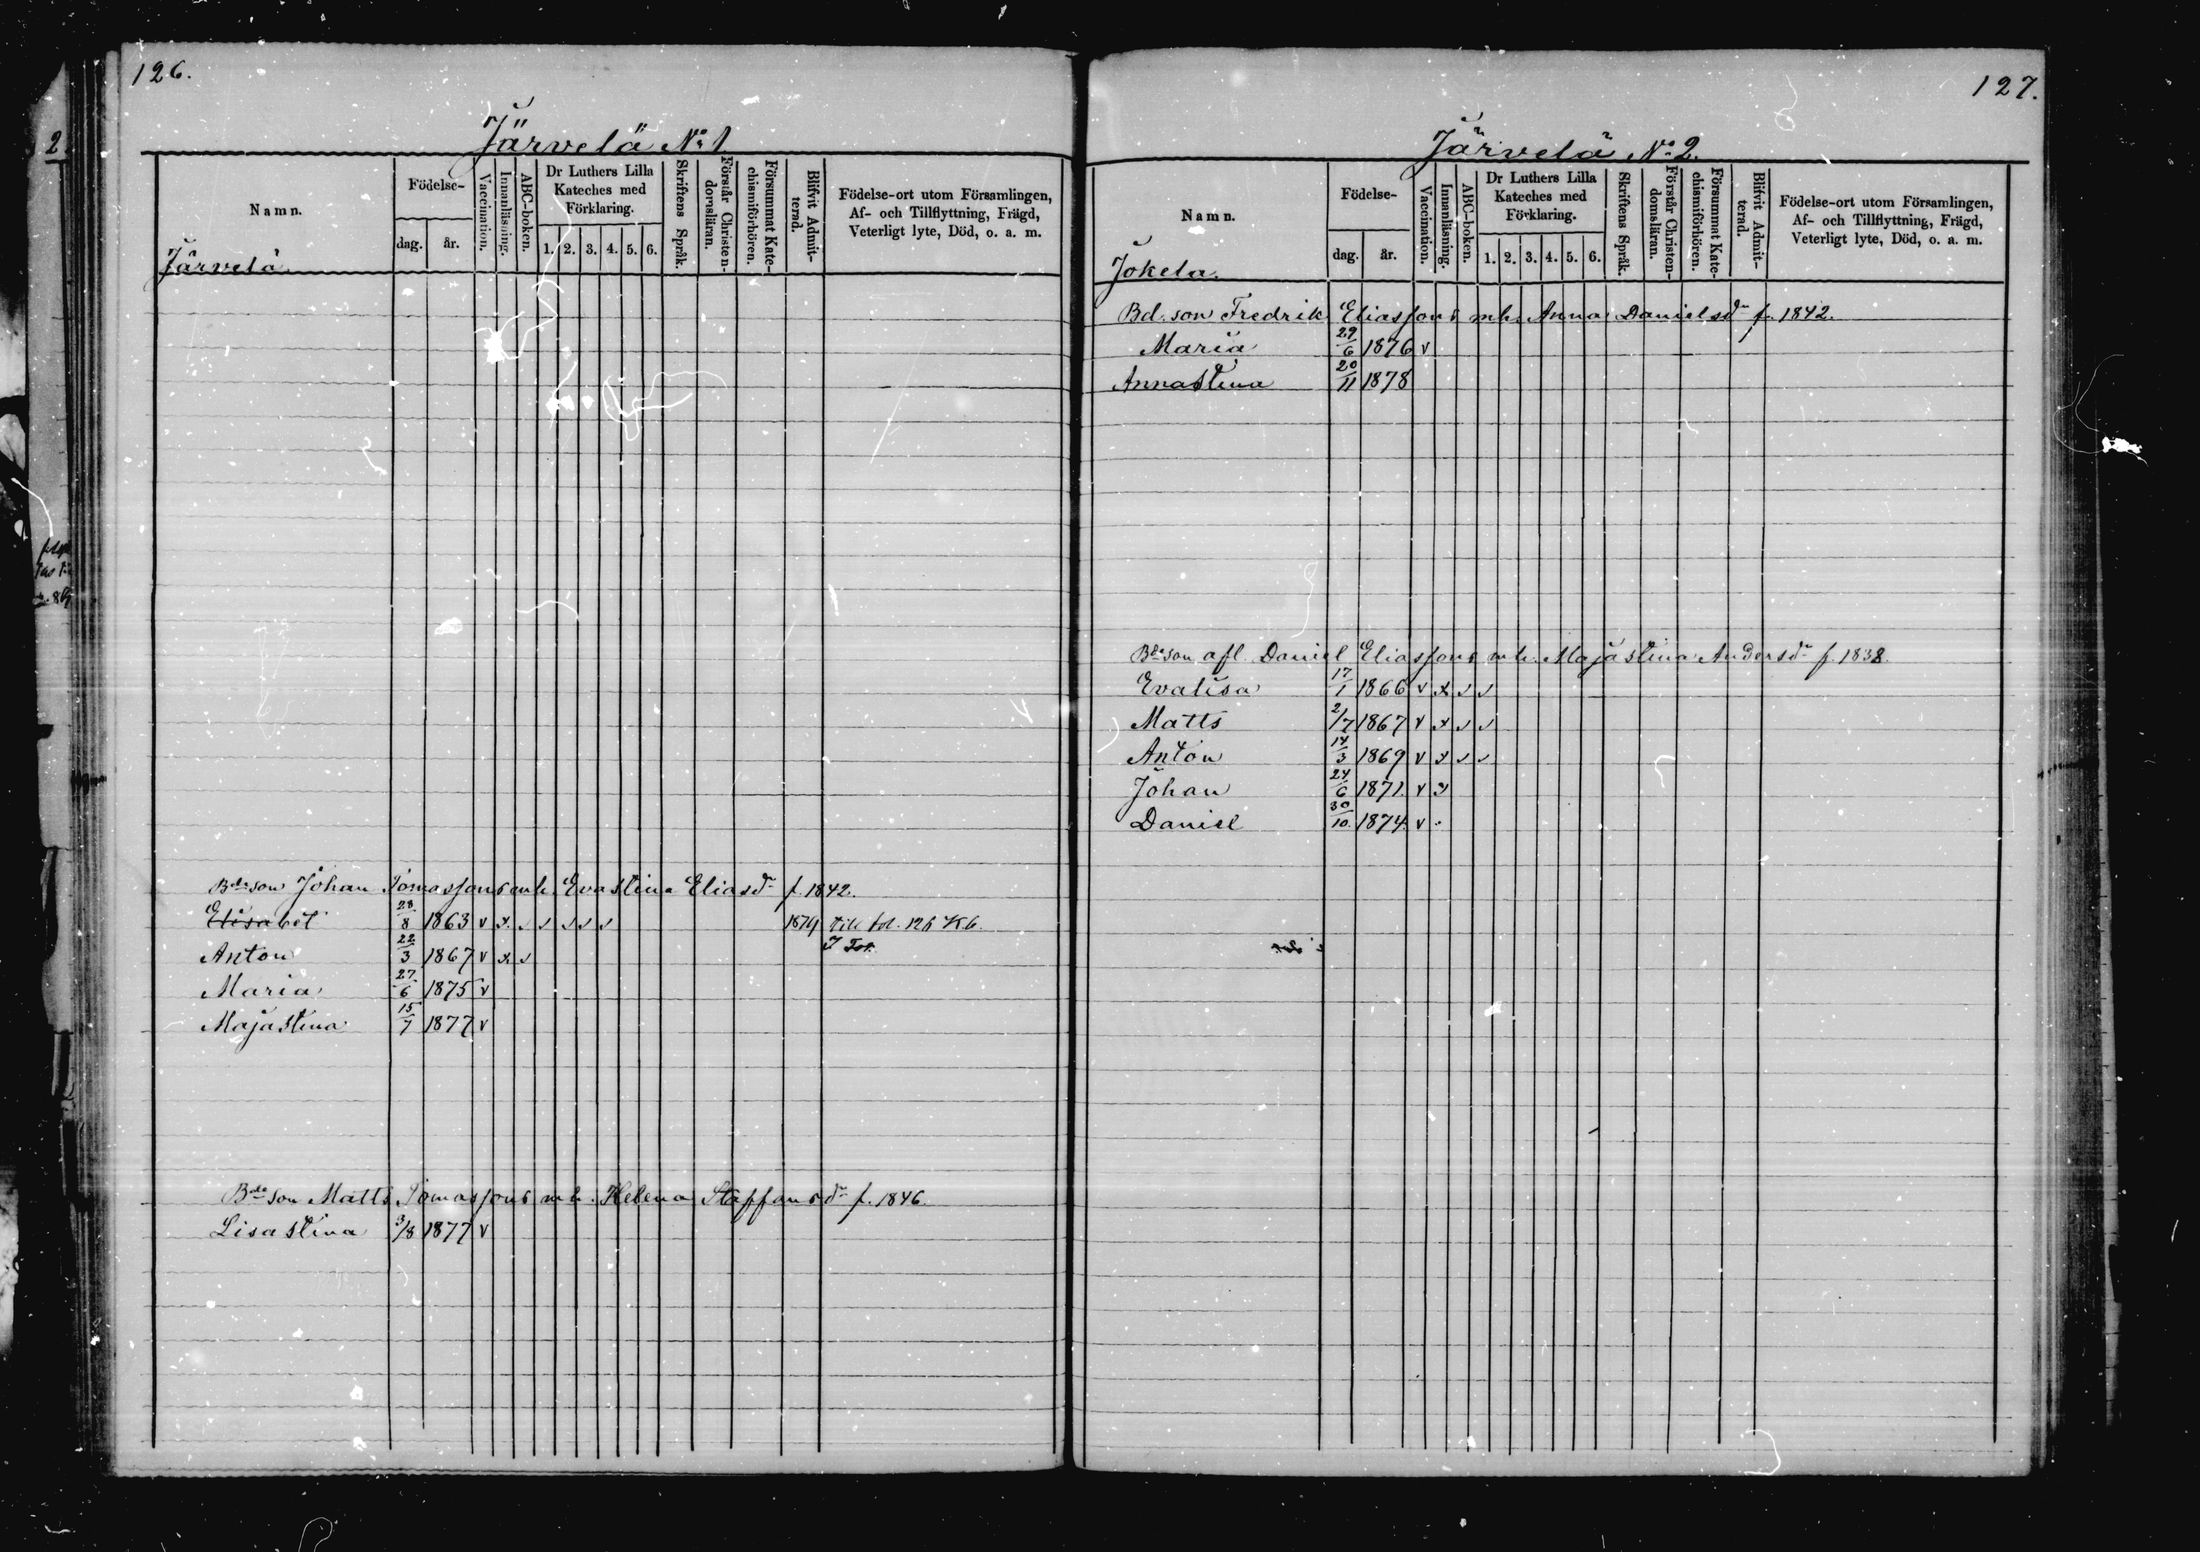 126.
Järvelä No 1
Namn.
Födelse-
dag.
år.
Vaccination.
Innanläsning.
ABC-boken.
Dr Luthers Lilla Kateches med Förklaring.
1. 2. 3. 4. 5. 6.
Skriftens Språk.
Förstår Christen-domsläran.
Försummat Kate-chismiförhören.
Blifvit Admit-terad.
Födelse-ort utom Församlingen,
Af- och Tillflyttning, Frägd,
Veterligt lyte, Död, o. a. m.
Järvelä.
Bde son Johan Tomasfons mh. Evastina Eliasdr f. 1842.
Elisabet 28/8 1863 v x. v v v v v 1879 till fol. 126 Kb.
I Tot.
Anton 22/3 1867 v x v
Maria 27/6 1875 v
Majastina 15/7 1877 v
Bde son Matts Tomasfons mh. Helena Staffansdr f. 1846.
Lisastina 3/8 1877 v
127.
Järvelä No 2.
Namn.
Födelse-
dag.
år.
Vaccination.
Innanläsning.
ABC-boken.
Dr Luthers Lilla Kateches med Förklaring.
1. 2. 3. 4. 5. 6.
Skriftens Språk.
Förstår Christen-domsläran.
Försummat Kate-chismiförhören.
Blifvit Admit-terad.
Födelse-ort utom Församlingen,
Af- och Tillflyttning, Frägd,
Veterligt lyte, Död, o. a. m.
Jokela.
Bd. son Fredrik Eliasfons mh. Anna Danielsdr f. 1842.
Maria 29/6 1876 v
Annastina 20/11 1878
Bde son afl. Daniel Eliasfons mh. Majastina Andersdr f. 1838.
Evalisa 17/1 1866 v x v v
Matts 2/7 1867 v x v v
Anton 14/3 1869 v x v v
Johan 24/6 1871. v v
Daniel 30/10. 1874. v .